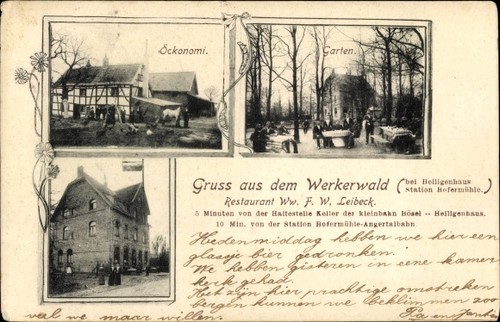 Öckonomi.
Garten.
Gruss aus dem Werkerwald (bei Heiligenhaus Station Hofermühle.)
Restaurant Ww. F. W. Leibeck.
5 Minuten von der Haltestelle Keller der kleinbahn Hösel — Heiligenhaus.
10 Min. von der Station Hofermühle-Angerthalbahn.
Heden middag hebben we hier een
glaasje bier gedronken.
We hebben gisteren in eene kamer
kerk gehad.
Het zijn hier prachtige omstreken
bergen kunnen we beklimmen zoo
veel we maar willen.